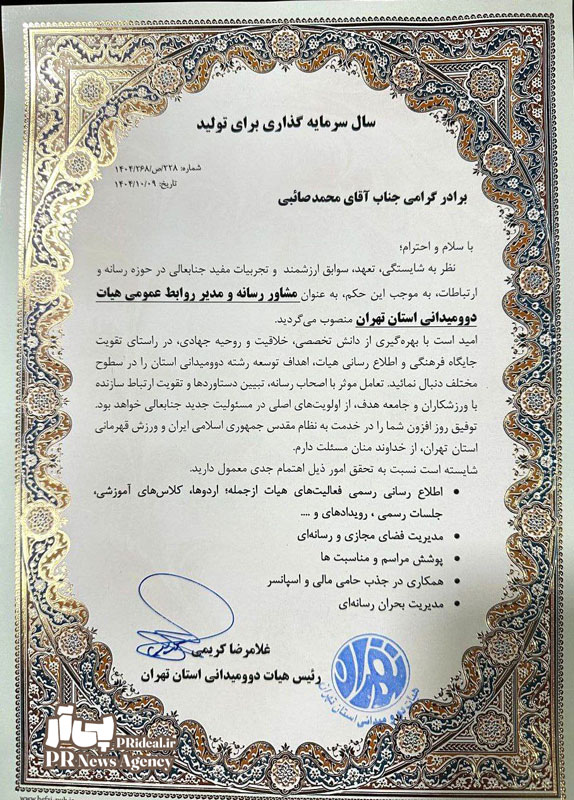 سال سرمایه گذاری برای تولید
شماره: ۲۲۸/ص/۱۴۰۴/۲۶۸
تاریخ: ۱۴۰۴/۱۰/۰۹
برادر گرامی جناب آقای محمدصائبی
با سلام و احترام؛
نظر به شایستگی، تعهد، سوابق ارزشمند و تجربیات مفید جنابعالی در حوزه رسانه و
ارتباطات، به موجب این حکم، به عنوان مشاور رسانه و مدیر روابط عمومی هیات
دوومیدانی استان تهران منصوب می‌گردید.
امید است با بهره‌گیری از دانش تخصصی، خلاقیت و روحیه جهادی، در راستای تقویت
جایگاه فرهنگی و اطلاع رسانی هیات، اهداف توسعه رشته دوومیدانی استان را در سطوح
مختلف دنبال نمائید. تعامل موثر با اصحاب رسانه، تبیین دستاوردها و تقویت ارتباط سازنده
با ورزشکاران و جامعه هدف، از اولویت‌های اصلی در مسئولیت جدید جنابعالی خواهد بود.
توفیق روز افزون شما را در خدمت به نظام مقدس جمهوری اسلامی ایران و ورزش قهرمانی
استان تهران، از خداوند منان مسئلت دارم.
شایسته است نسبت به تحقق امور ذیل اهتمام جدی معمول دارید.
• اطلاع رسانی رسمی فعالیت‌های هیات ازجمله؛ اردوها، کلاس‌های آموزشی،
جلسات رسمی ، رویدادهای و ....
• مدیریت فضای مجازی و رسانه‌ای
• پوشش مراسم و مناسبت ها
• همکاری در جذب حامی مالی و اسپانسر
• مدیریت بحران رسانه‌ای
غلامرضا کریمی
رئیس هیات دوومیدانی استان تهران
تهران
هیات دو و میدانی استان تهران
پی‌آر
PRideal.ir
PR News Agency